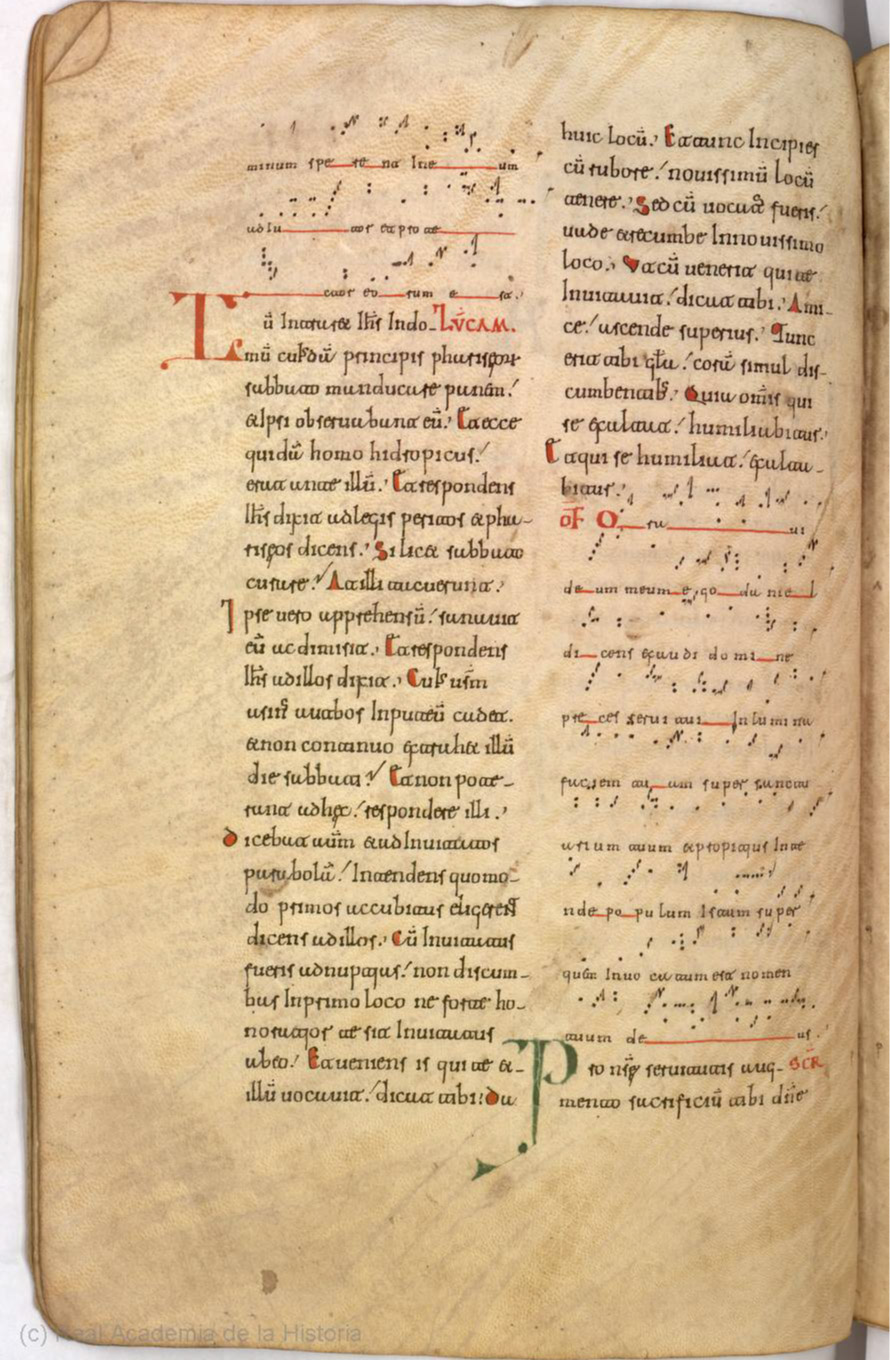 minum spe re nt In e um
adiu tor et pro te
ctor eo rum e st.
Cū Intraret Ihs̄ Indo- LVCAM.
mū cuiusdā principis phariseor
sabbato manducare panem.
et ipsi obseruabant eū. Et ecce
quidā homo hidropicus.
erat ante illū. Et respondens
Ihs̄ dixit ad legis peritos et pha-
riseos dicens. Si licet sabbato
curare. At illi tacuerunt.
Ipse uero apprehensū. sanauit
eū ac dimisit. Et respondens
Ihs̄ ad illos dixit. Cuius usm̄
asin̄ aut bos In puteū cadet.
et non continuo extrahet illū
die sabbati. Et non pote-
rant ad hęc. respondere illi.
Dicebat autm̄ et ad Inuitatos
parabolā. Intendens quomo-
do primos accubitus eligerent
dicens ad illos. Cū Inuitatus
fueris ad nuptias. non discum-
bas In primo loco ne forte ho-
noratior te sit Inuitatus
abeo. Et ueniens is qui te et
illū uocauit. dicat tibi. Da
huic locū. Et tunc Incipies
cū rubore. nouissimū locū
tenere. Sed cū uocatus fueris.
uade et recumbe In nouissimo
loco. Vt cū uenerit qui te
Inuitauit. dicat tibi. Ami-
ce. ascende superius. Tunc
erit tibi glā. corā simul dis-
cumbentibs. Quia omīs qui
se exaltat. humiliabitur.
Et qui se humiliat. exalta-
bitur.
of O ra ui
de um meum e go da nie l
di cens exaudi do mi ne
pre ces serui tui In lumina
faciem tu am super sanctu
arium tuum et propitius Inte
nde po pu lum Istum super
quem Inuo catum est nomen
tuum de us.
Pro nsi seruitutis aug- SCR
mento sacrificiū tibi dn̄e
(c) Real Academia de la Historia